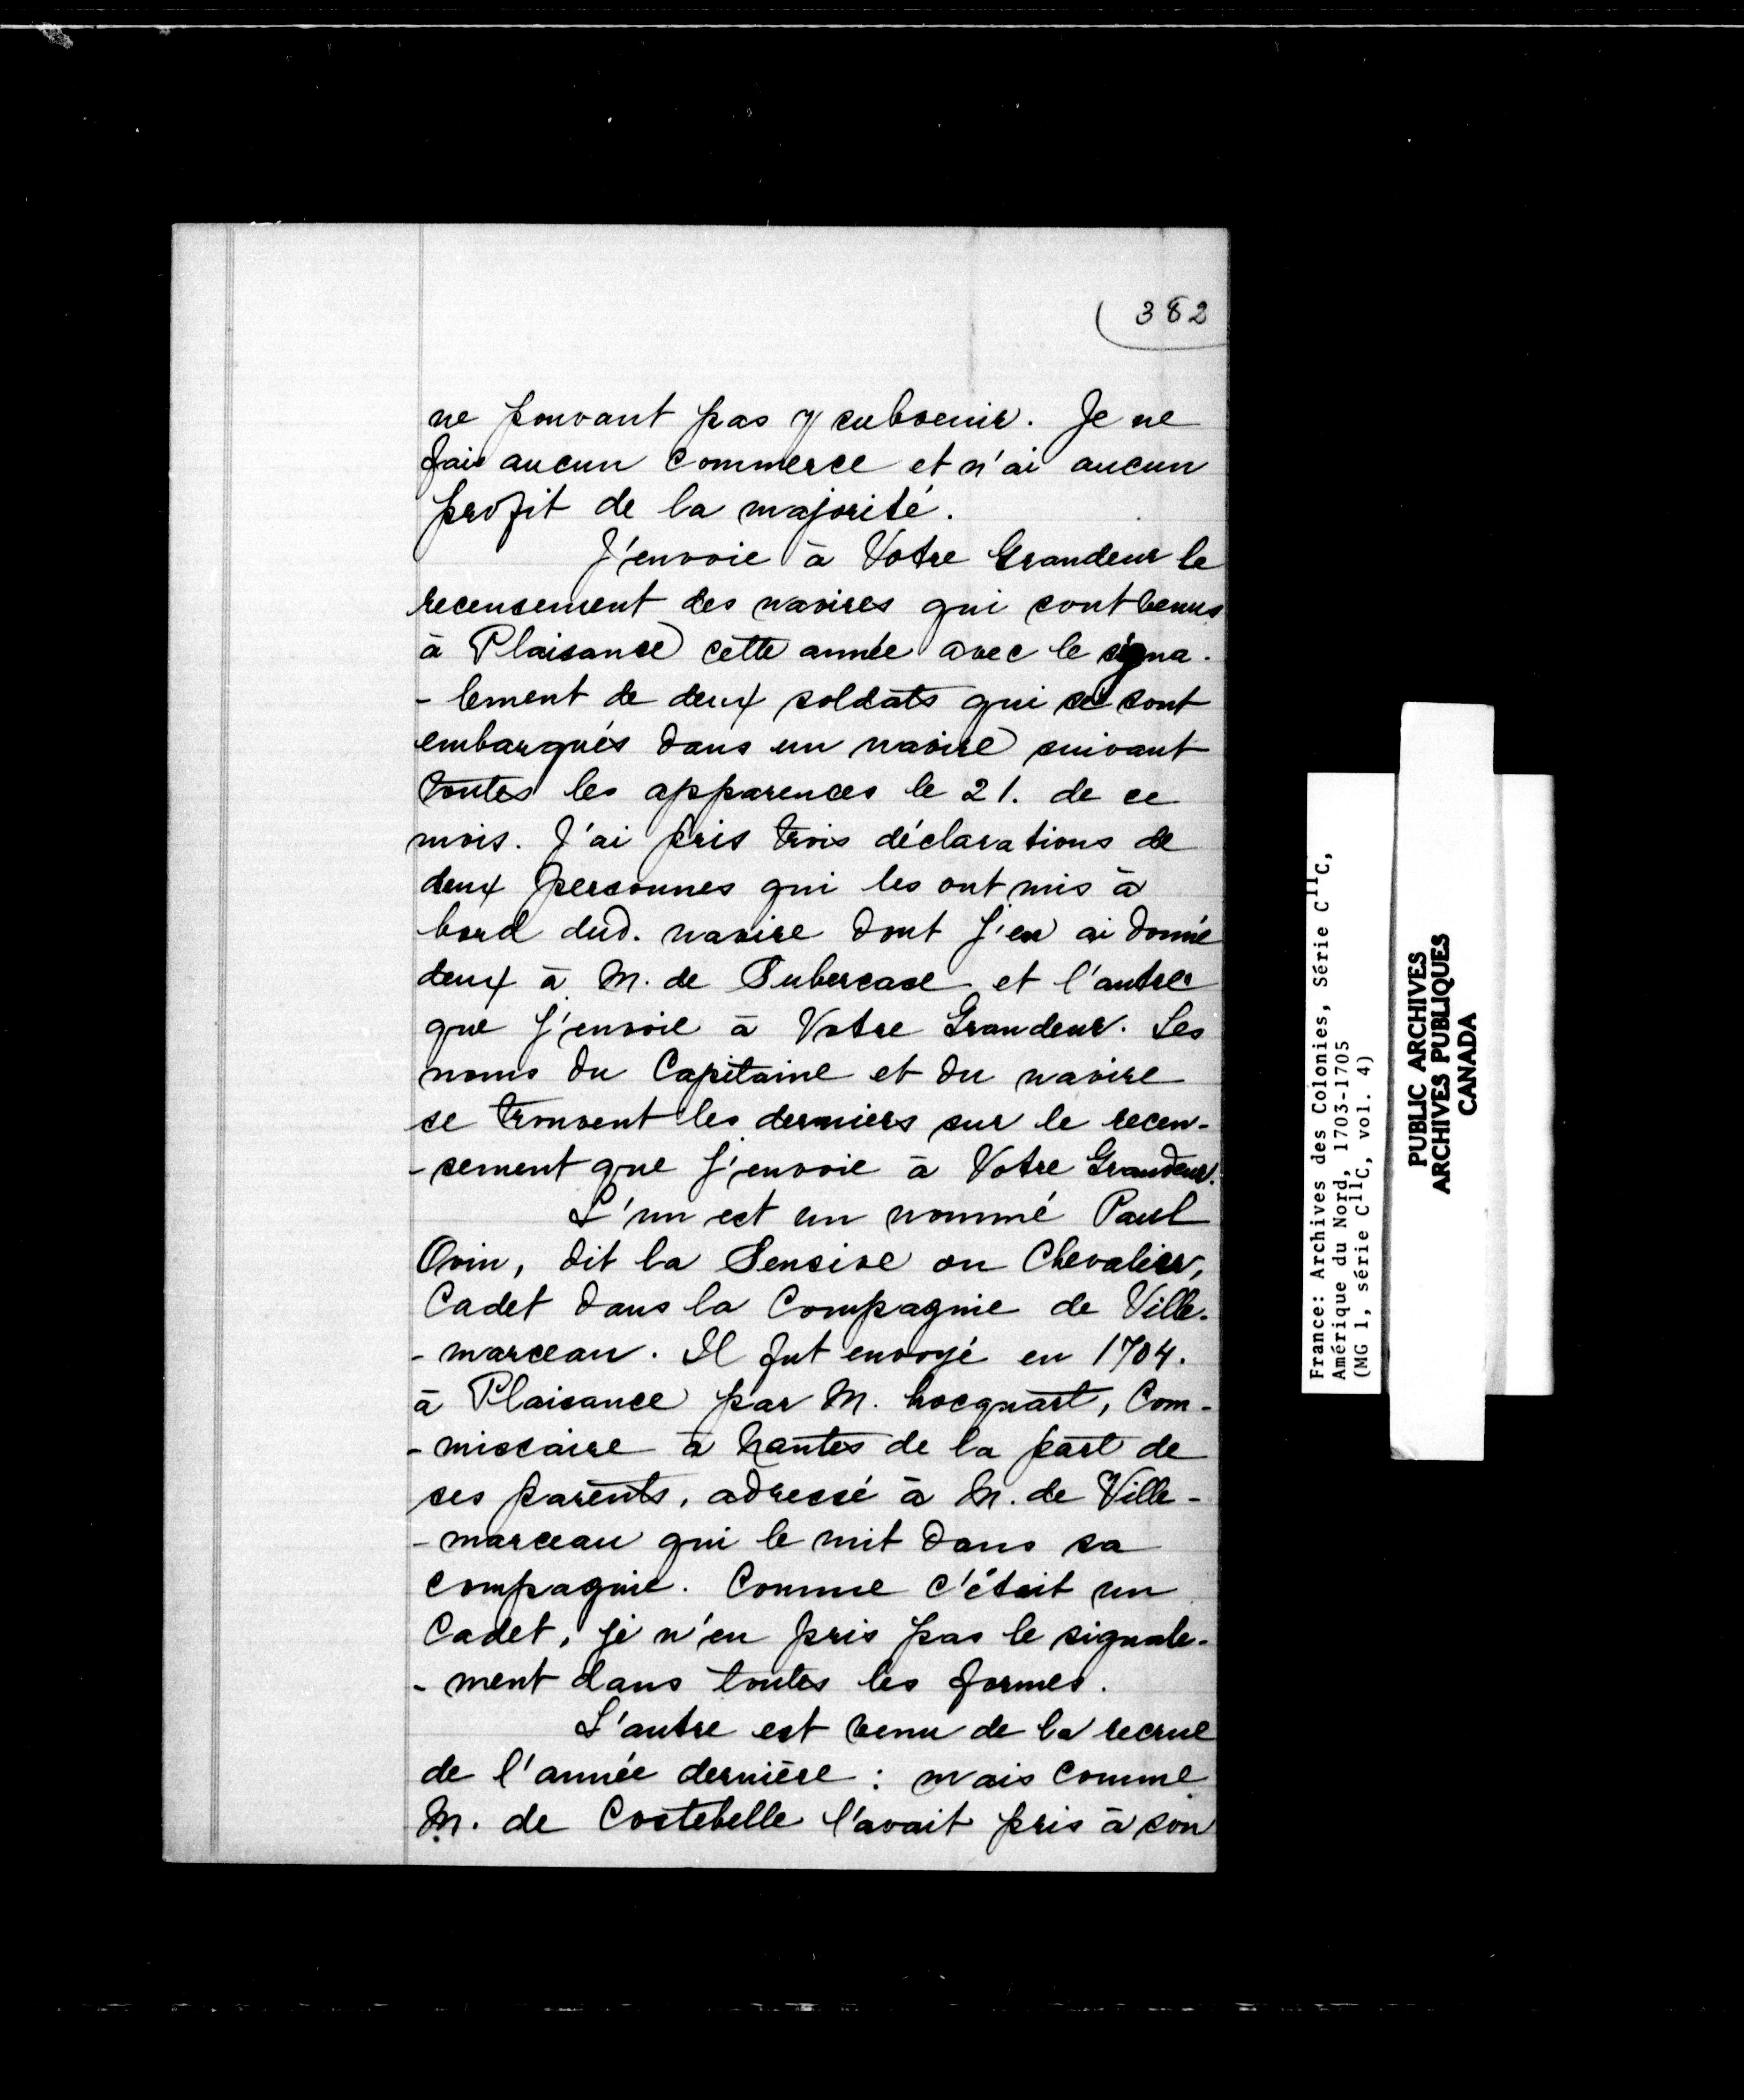 382
ne pouvant pas y subvenir. Je ne
fais aucun commerce et n'ai aucun
profit de la majorité.
J'envoie à Votre Grandeur le
recensement des navires qui sont venus
à Plaisance cette année avec le signa-
-lement de deux soldats qui se sont
embarqués dans un navire suivant
toutes les apparences le 21. de ce
mois. J'ai pris trois déclarations de
deux personnes qui les ont mis à
bord dud. navire dont j'en ai donné
deux à M. de Subercase et l'autre
que j'envoie à Votre Grandeur. Les
noms du Capitaine et du navire
se trouvent les derniers sur le recen-
-sement que j'envoie à Votre Grandeur.
L'un est un nommé Paul
Ovin, dit la Sensive ou Chevalier,
Cadet dans la Compagnie de Ville-
-marceau. Il fut envoyé en 1704.
à Plaisance par M. hocquart, Com-
-missaire à Nantes de la part de
ses parents, adressé à M. de Ville-
-marceau qui le mit dans sa
compagnie. Comme c'était un
Cadet, je n'en pris pas le signale-
-ment dans toutes les formes.
L'autre est venu de la recrue
de l'année dernière : mais comme
M. de Costebelle l'avait pris à son
France: Archives des Colonies, Série C11C,
Amérique du Nord, 1703-1705
(MG 1, série C11C, vol. 4)
PUBLIC ARCHIVES
ARCHIVES PUBLIQUES
CANADA